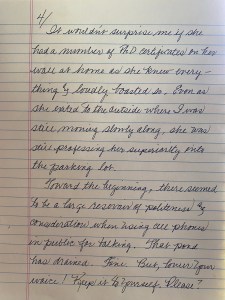 4/
It wouldn't surprise me if she
had a number of PhD certificates on her
wall at home as she knew every-
thing & loudly boasted so. Soon as
she exited to the outside where I was
still moving slowly along, she was
still professing her superiority onto
the parking lot.
Toward the beginning, there seemed
to be a large resevoir of politeness &
consideration when using cell phones
in public for talking. That pond
has drained. Fine. But, lower your
voice! Keep it to yourself. Please?